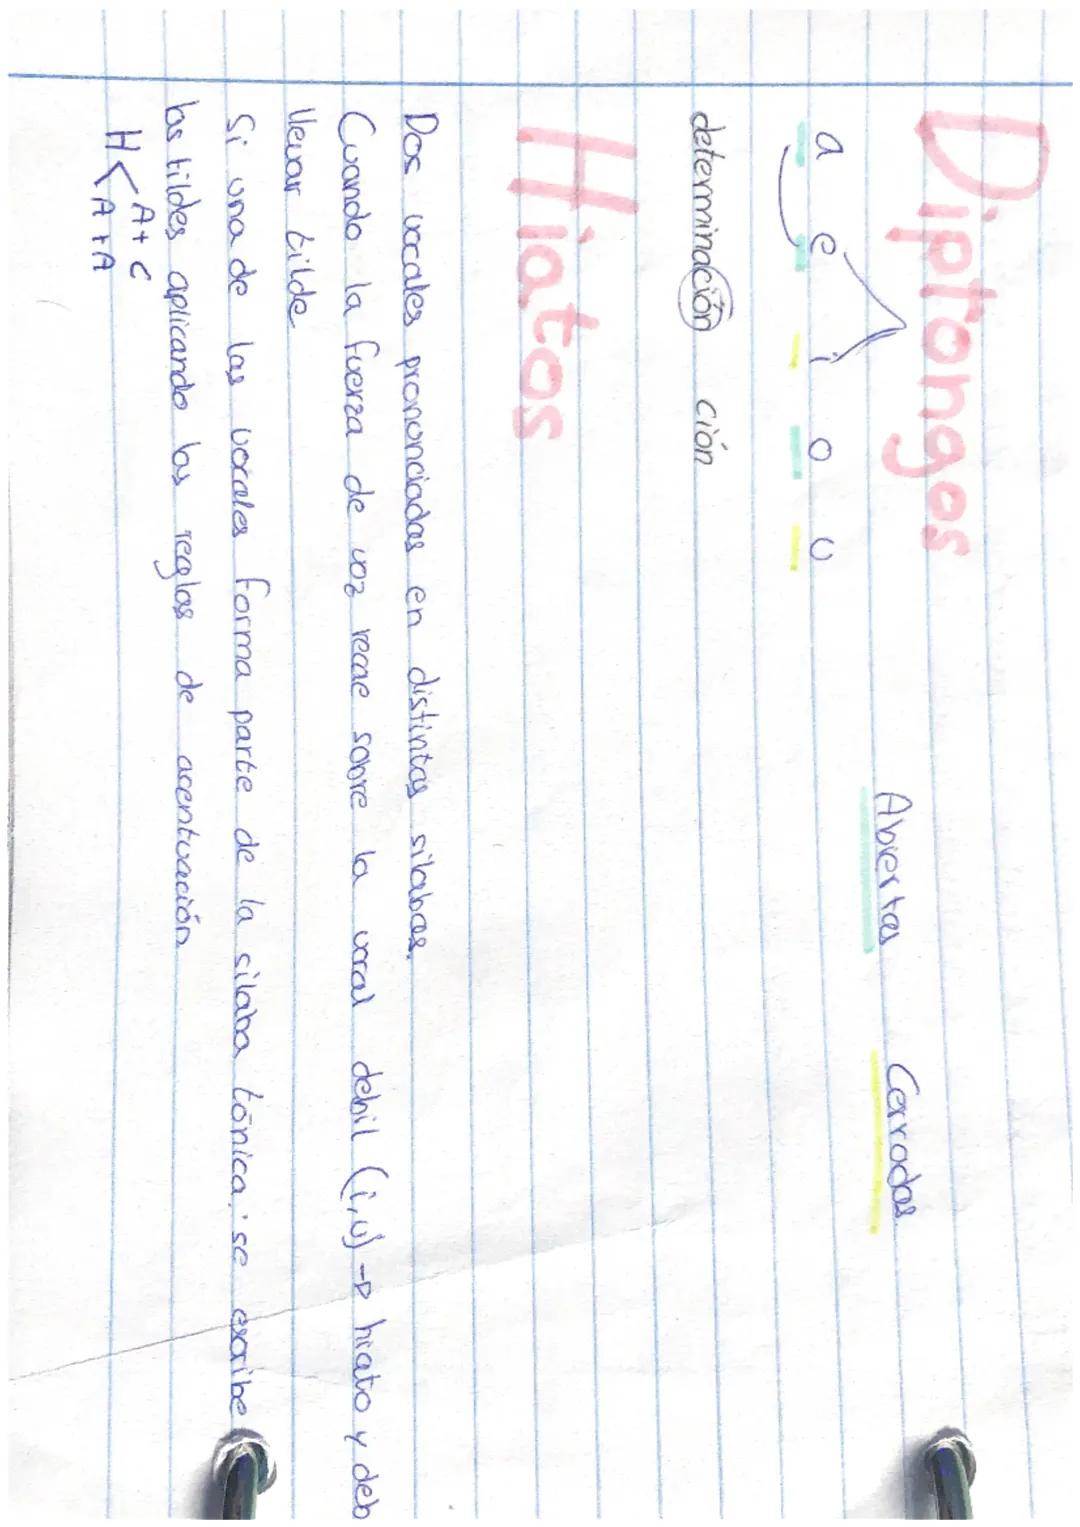 Diptongos
Abiertas Cerradas
a e i o u
determinación ción
Hiatos
Dos vocales pronunciadas en distintas silabas.
Cuando la fuerza de voz recae sobre la vocal debil (i,u) → hiato y deb
llevar tilde
Si una de las vocales forma parte de la silaba tónica; se escribe
las tildes aplicando las reglas de acentuación
H < A+C
A+A